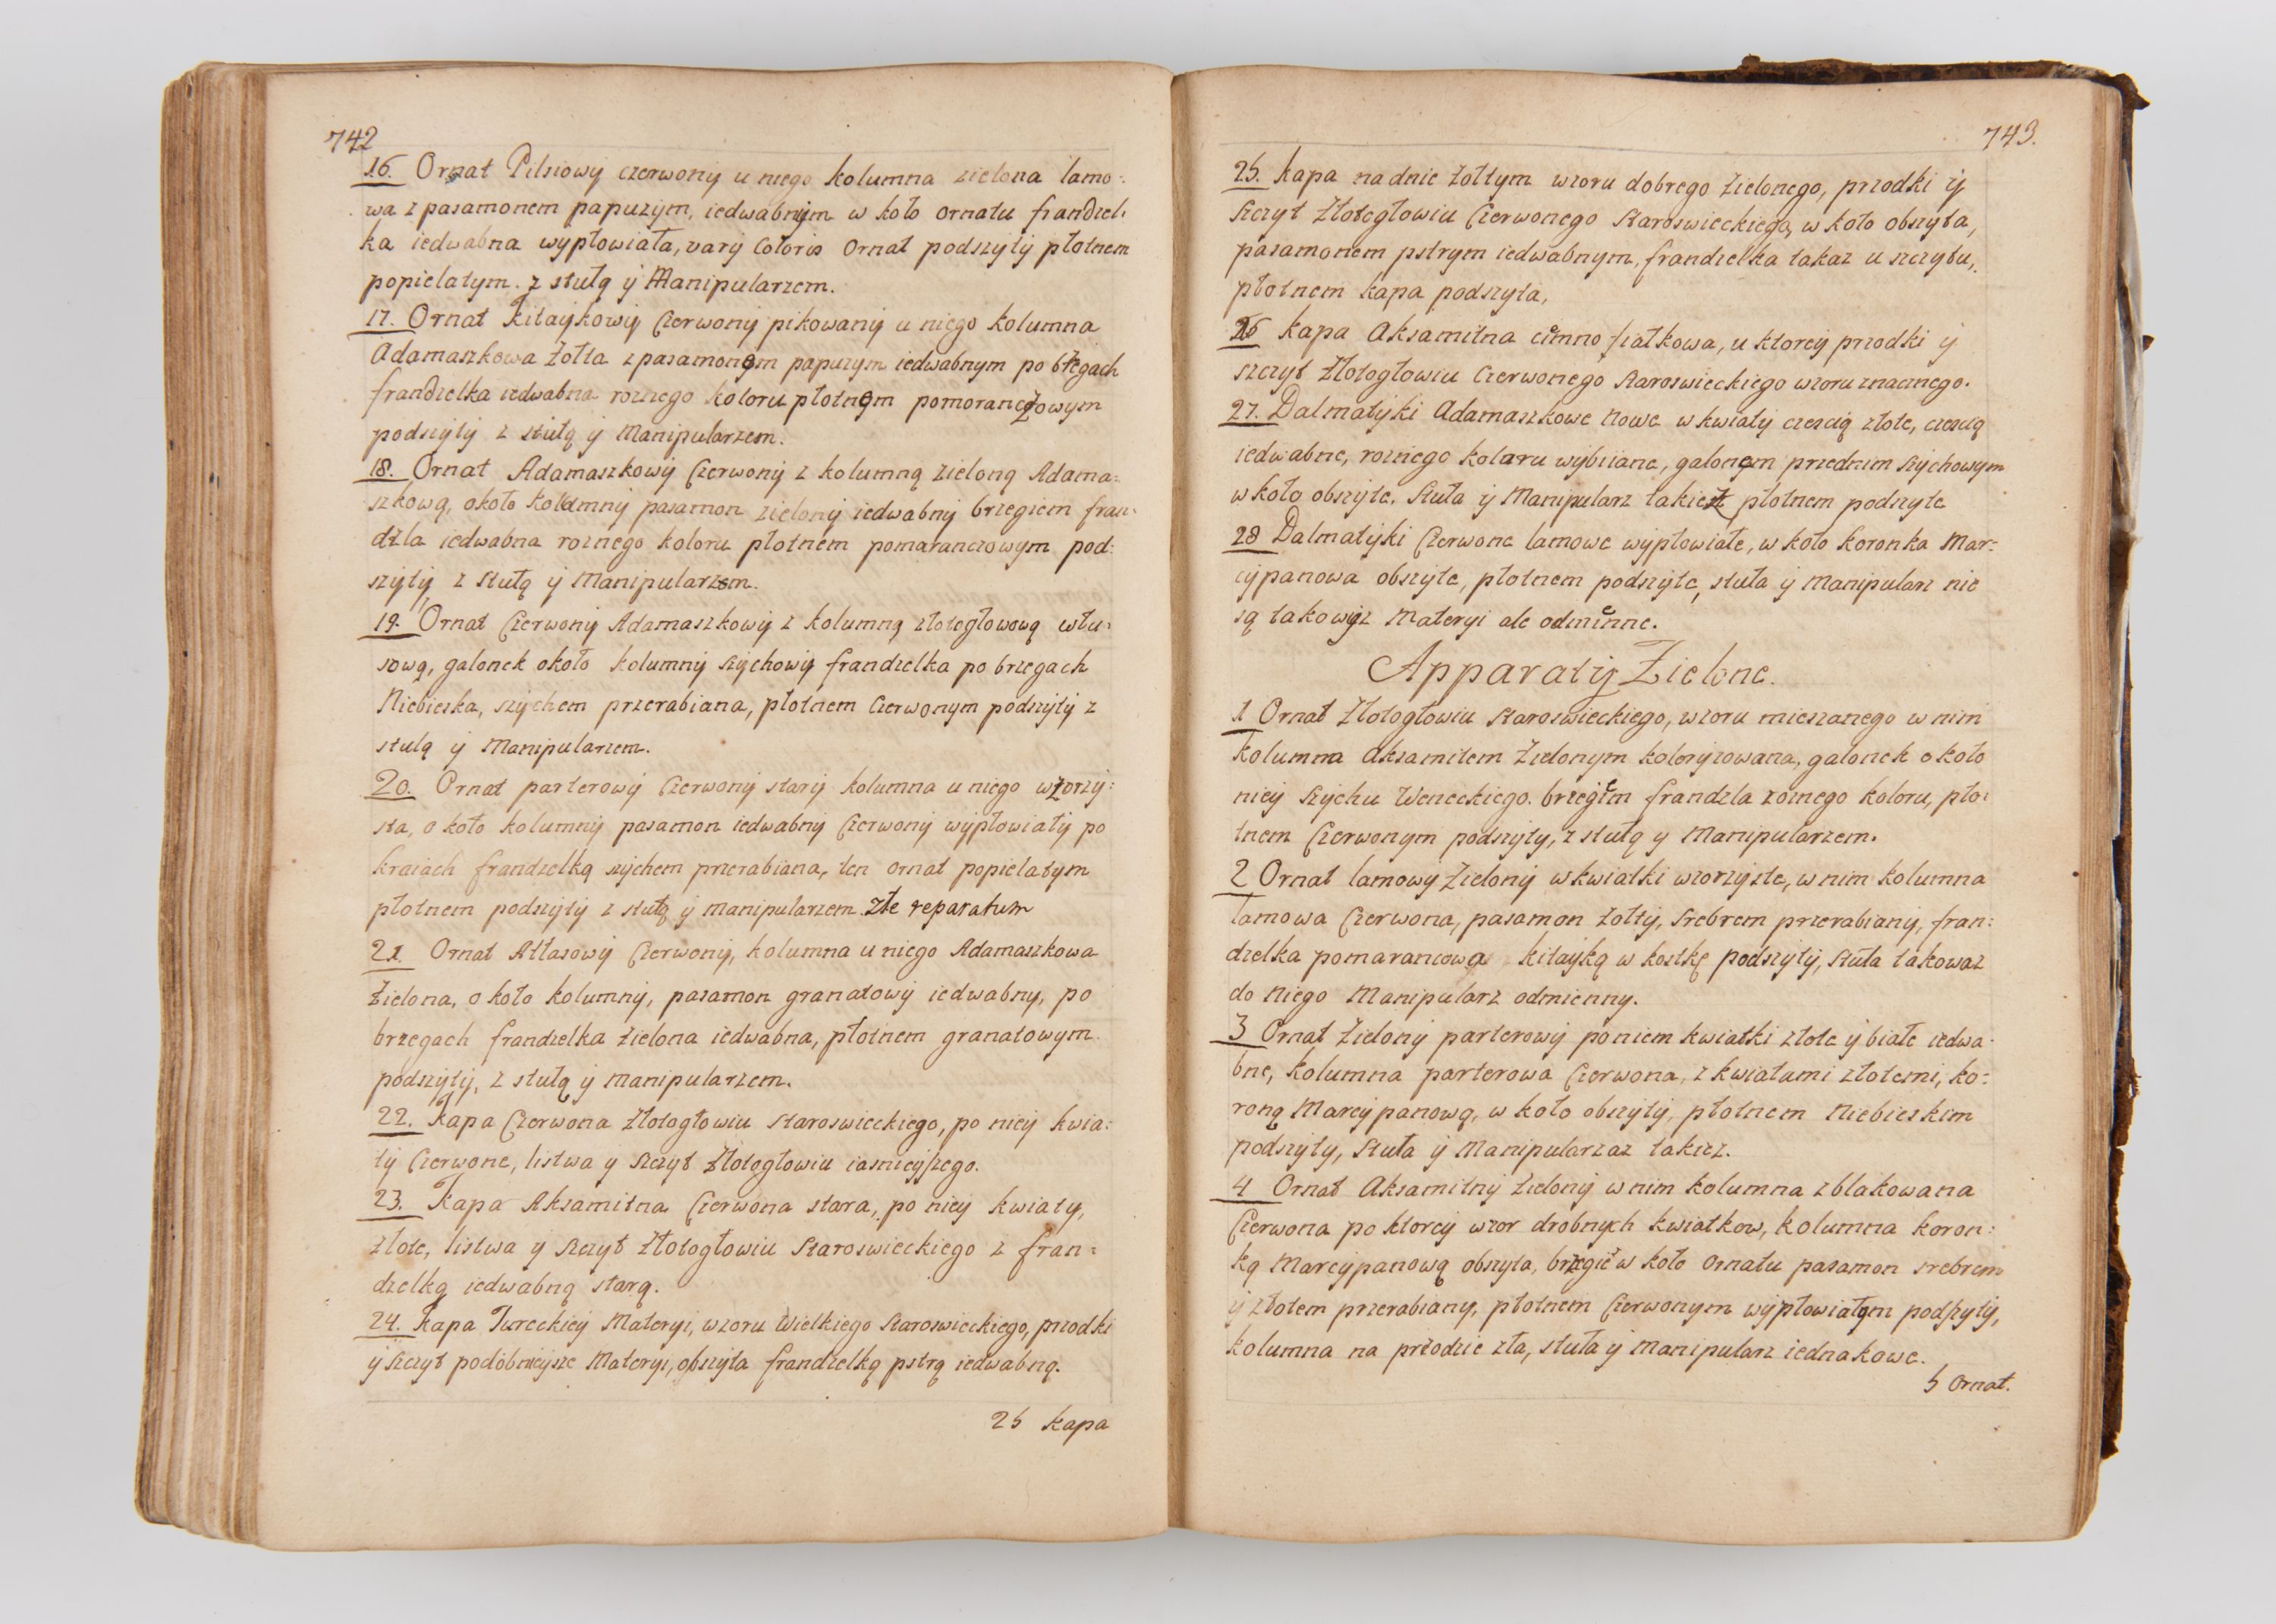 742
16. Ornat Pilsiowy czerwony u niego kolumna zielona lamo:
wa z pasamonem papuzym, iedwabnym w koło ornatu frandzel:
ka iedwabna wypłowiała, vary Coloris Ornat podszyty płotnem
popielatym. z stułą y Manipularzem.
17. Ornat Kitaykowy Czerwony pikowany u niego kolumna
Adamaszkowa żołta z pasamonem papuzym iedwabnym po brzegach
frandzelka iedwabna roznego koloru płotnem pomoranczowym
podszyty z stułą y Manipularzem.
18. Ornat Adamaszkowy Czerwony z kolumną zieloną Adama:
szkową, około kolumny pasamon zielony iedwabny brzegiem fran:
dzla iedwabna roznego koloru płotnem pomaranczowym pod:
szyty z stułą y Manipularzem.
19. Ornat Czerwony Adamaszkowy z kolumną złotogłowową włu:
sową, galonek około kolumny szychowy frandzelka po brzegach
Niebieska, szychem przerabiana, płotnem Czerwonym podszyty z
stułą y Manipularzem.
20. Ornat parterowy Czerwony stary kolumna u niego wzorzy:
sta, około kolumny pasamon iedwabny Czerwony wypłowiały po
kraiach frandzelką szychem przerabiana, ten ornat popielatym
płotnem podszyty z stułą y manipularzem. złe reparatum
21. Ornat Atłasowy Czerwony, kolumna u niego Adamaszkowa
żielona, około kolumny, pasamon granatowy iedwabny, po
brzegach frandzelka żielona iedwabna, płotnem granatowym.
podszyty, z stułą y manipularzem.
22. Kapa Czerwona złotogłowiu staroswieckiego, po niey kwia:
ty Czerwone, listwa y szczyt złotogłowiu iasnieyszego.
23. Kapa Aksamitna Czerwona stara, po niey kwiaty,
złote, listwa y szczyt złotogłowiu staroswieckiego z fran:
dzelką iedwabną starą.
24. Kapa Tureckiey Materyi, wzoru Wielkiego Staroswieckiego, przodki
y szczyt podobnieysze Materyi, obszyta frandzelką pstrą iedwabną.
25 Kapa
743.
25. Kapa na dnie żołtym wzoru dobrego żielonego, przodki y
szczyt złotogłowiu Czerwonego staroswieckiego, w koło obszyta,
pasamonem pstrym iedwabnym, frandzelka takaz u szczytu,
płotnem kapa podszyta,
26 Kapa Aksamitna ciemno fiałkowa, u ktorey przodki y
szczyt złotogłowiu Czerwonego staroswieckiego wzoru znacznego.
27. Dalmatyki Adamaszkowe nowe w kwiaty czescią złote, czescią
iedwabne, roznego koloru wybiiane, galonem przednim szychowym
w koło obszyte. Stuła y Manipularz takież płotnem podszyte
28 Dalmatyki Czerwone lamowe wypłowiałe, w koło koronka Mar:
cypanowa obszyte, płotnem podszyte, stuła y Manipularz nie
są takowyz Materyi ale odmienne.
Apparaty Zielone.
1 Ornat złotogłowiu staroswieckiego, wzoru mieszanego w nim
kolumna aksamitem żielonym koloryzowana, galonek około
niey szychu Weneckiego. brzegiem frandzla roznego koloru, pło:
tnem Czerwonym podszyty, z stułą y Manipularzem.
2 Ornat lamowy żielony w kwiatki wzorzyste, w nim kolumna
lamowa Czerwona, pasamon żołty, srebrem przerabiany, fran:
dzelka pomarancowa kitayką w kostkę podszyty, stuła takowaz
do niego Manipularz odmienny.
3 Ornat żielony parterowy po niem kwiatki złote y białe iedwa:
bne, kolumna parterowa Czerwona, z kwiatami złotemi, ko:
roną Marcypanową, w koło obszyty, płotnem Niebieskim
podszyty, stuła y Manipularzaz takiez.
4 Ornat Aksamitny żielony w nim kolumna zblakowana
Czerwona po ktorey wzor drobnych kwiatkow, kolumna koron:
ką Marcypanową obszyta, brzegie w koło ornatu pasamon srebrem
y złotem przerabiany, płotnem Czerwonym wypłowiałym podszyty,
kolumna na przodzie zła, stuła y Manipularz iednakowe.
5 Ornat.